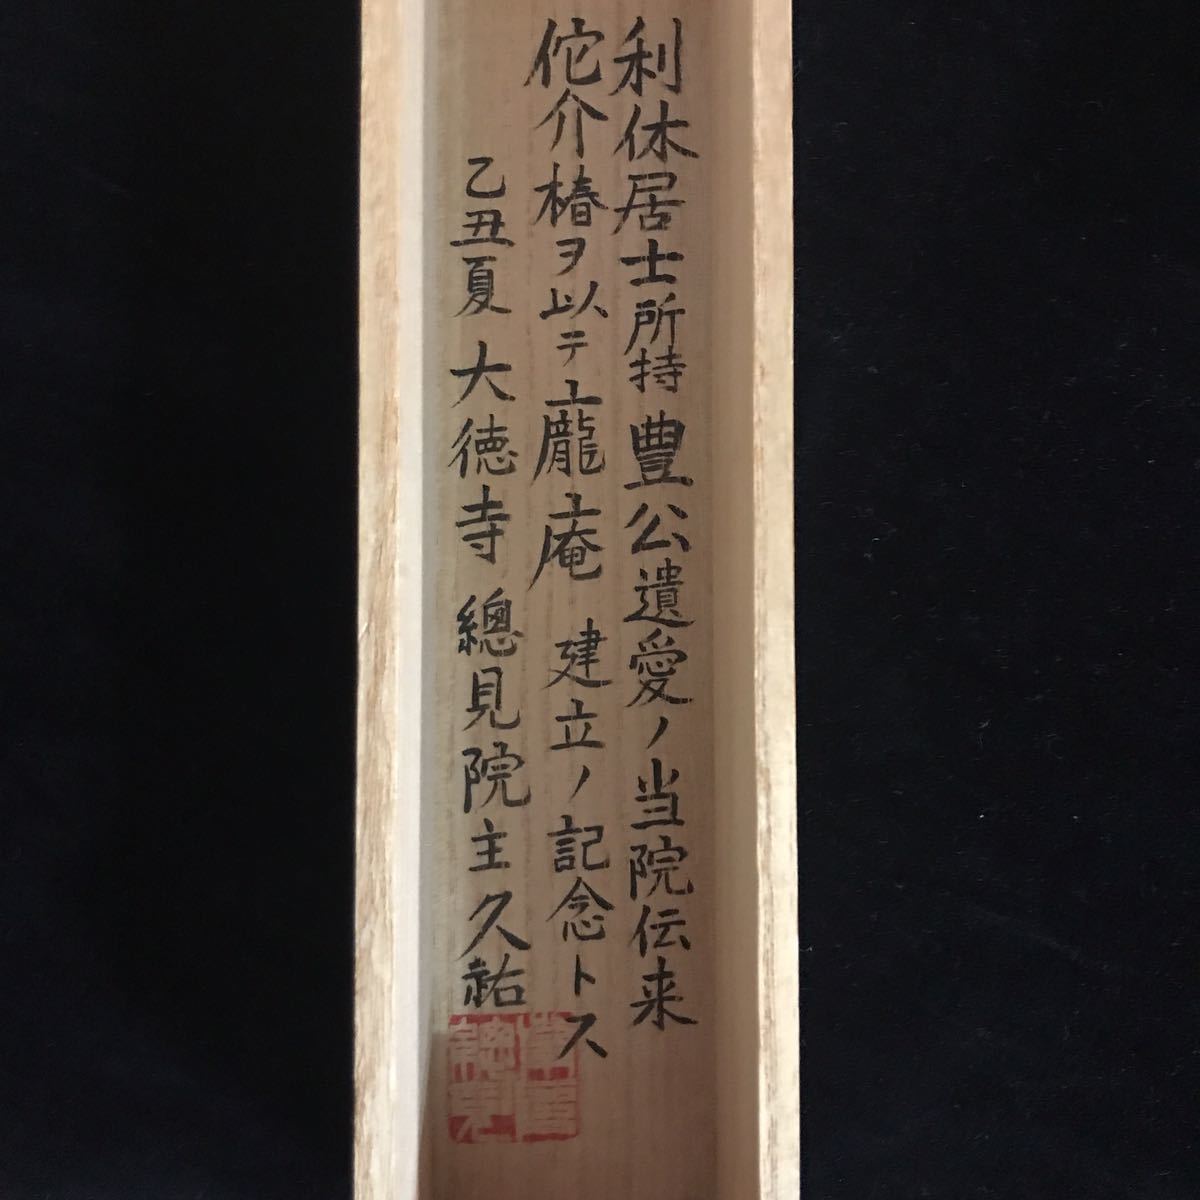 利休居士所持豊公遺愛ノ当院伝来
侘介椿ヲ以テ龐庵建立ノ記念トス
乙丑夏 大徳寺 總見院主久祐